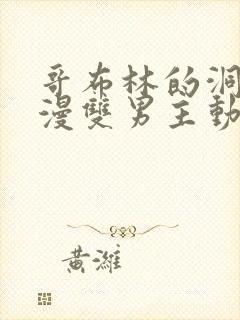 哥布林的洞
漫雙男主動
黃濰